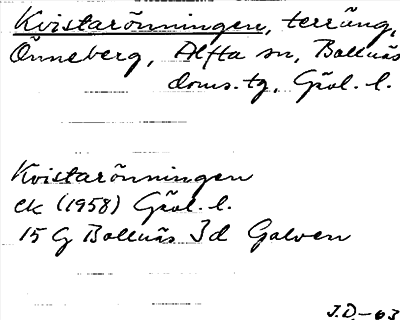 Kvistarönningen, terräng,
Önneberg, Alfta sn, Bollnäs
doms.tg, Gävl. l.
Kvistarönningen
ek (1958) Gävl. l.
15 G Bollnäs 3d Galven
J.D.-63